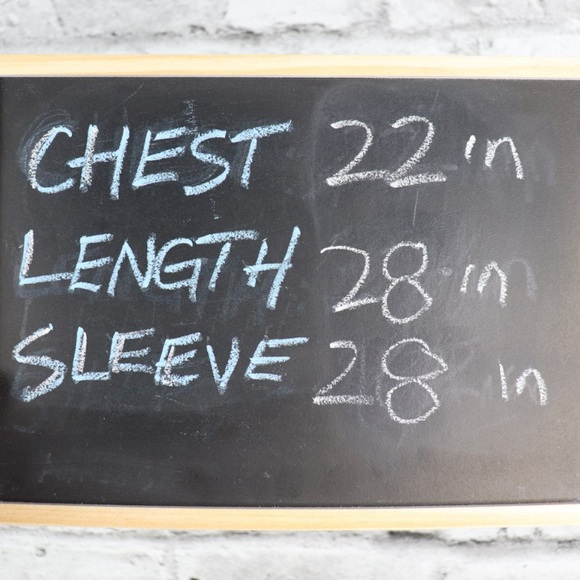 CHEST 22 in
LENGTH 28 in
SLEEVE 28 in